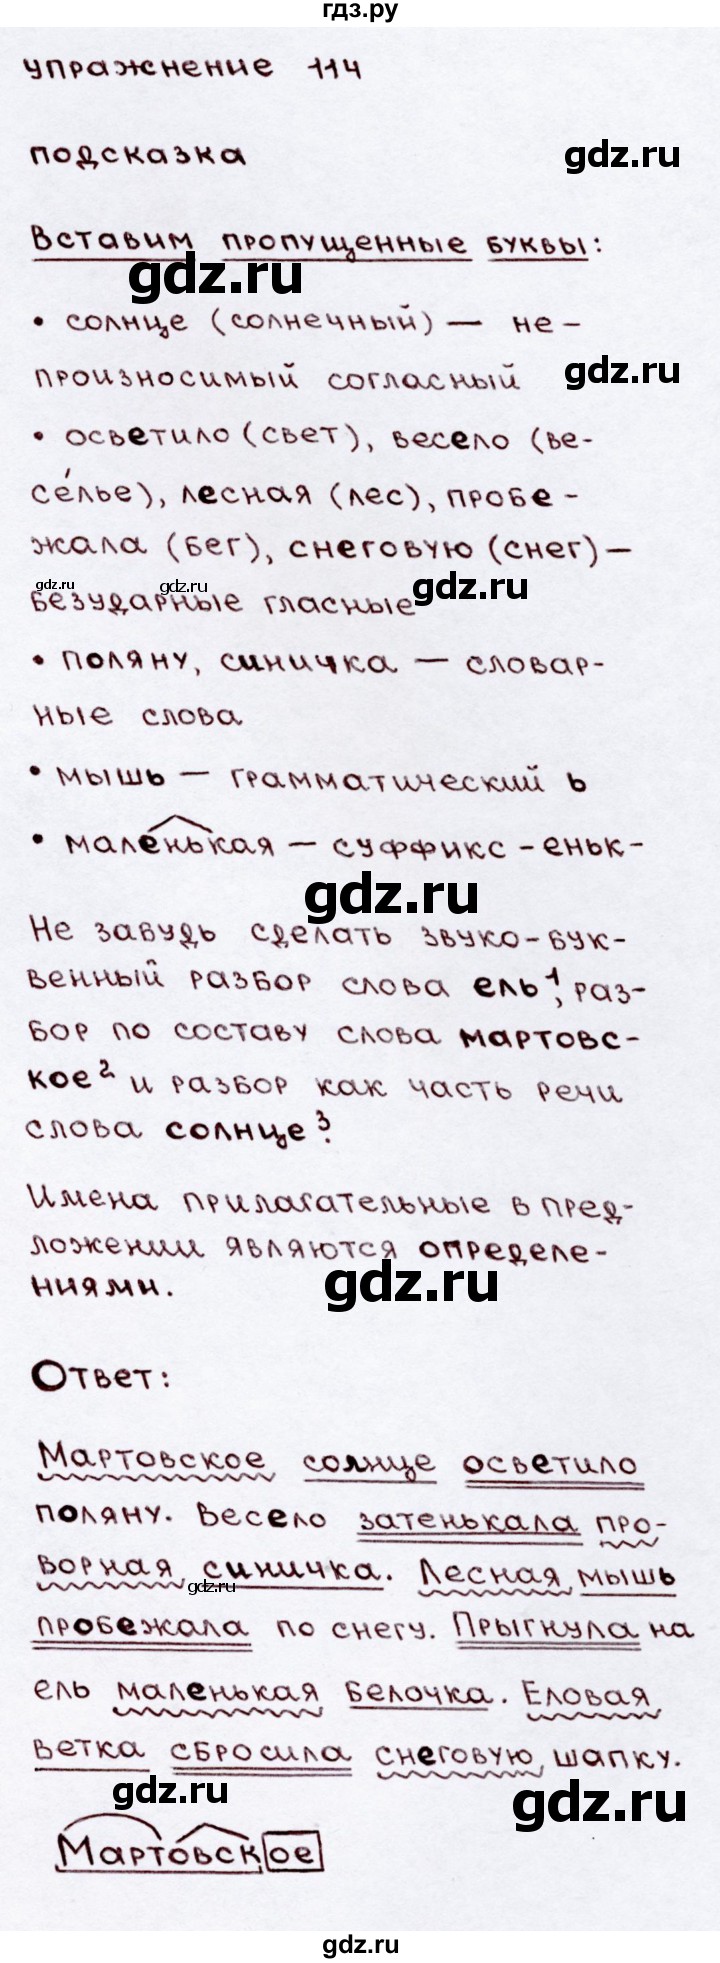 гдз.ру
упражнение 114
подсказка
gdz.ru
Вставим пропущенные буквы:
gdz.ru
• солнце (солнечный) — не-
произносимый согласный
gdz.ru
• осветило (свет), весело (ве-
се́лье), лесная (лес), пробе-
жала (бег), снеговую (снег) —
gdz.ru
gdz.ru
gdz.ru
безударные гласные
• поляну, синичка — словар-
ные слова
• мышь — грамматический ь
• маленькая — суффикс -еньк-
gdz.ru
Не забудь сделать звуко-бук-
венный разбор слова ель¹, раз-
бор по составу слова мартовс-
кое² и разбор как часть речи
слова солнце³.
Имена прилагательные в пред-
ложении являются определе-
ниями.
gdz.ru
Ответ:
Мартовское солнце осветило
поляну. Весело затенькала про-
ворная синичка. Лесная мышь
gdz.ru
пробежала по снегу. Прыгнула на
ель маленькая белочка. Еловая
ветка сбросила снеговую шапку.
gdz.ru
gdz.ru
Мартовское
gdz.ru